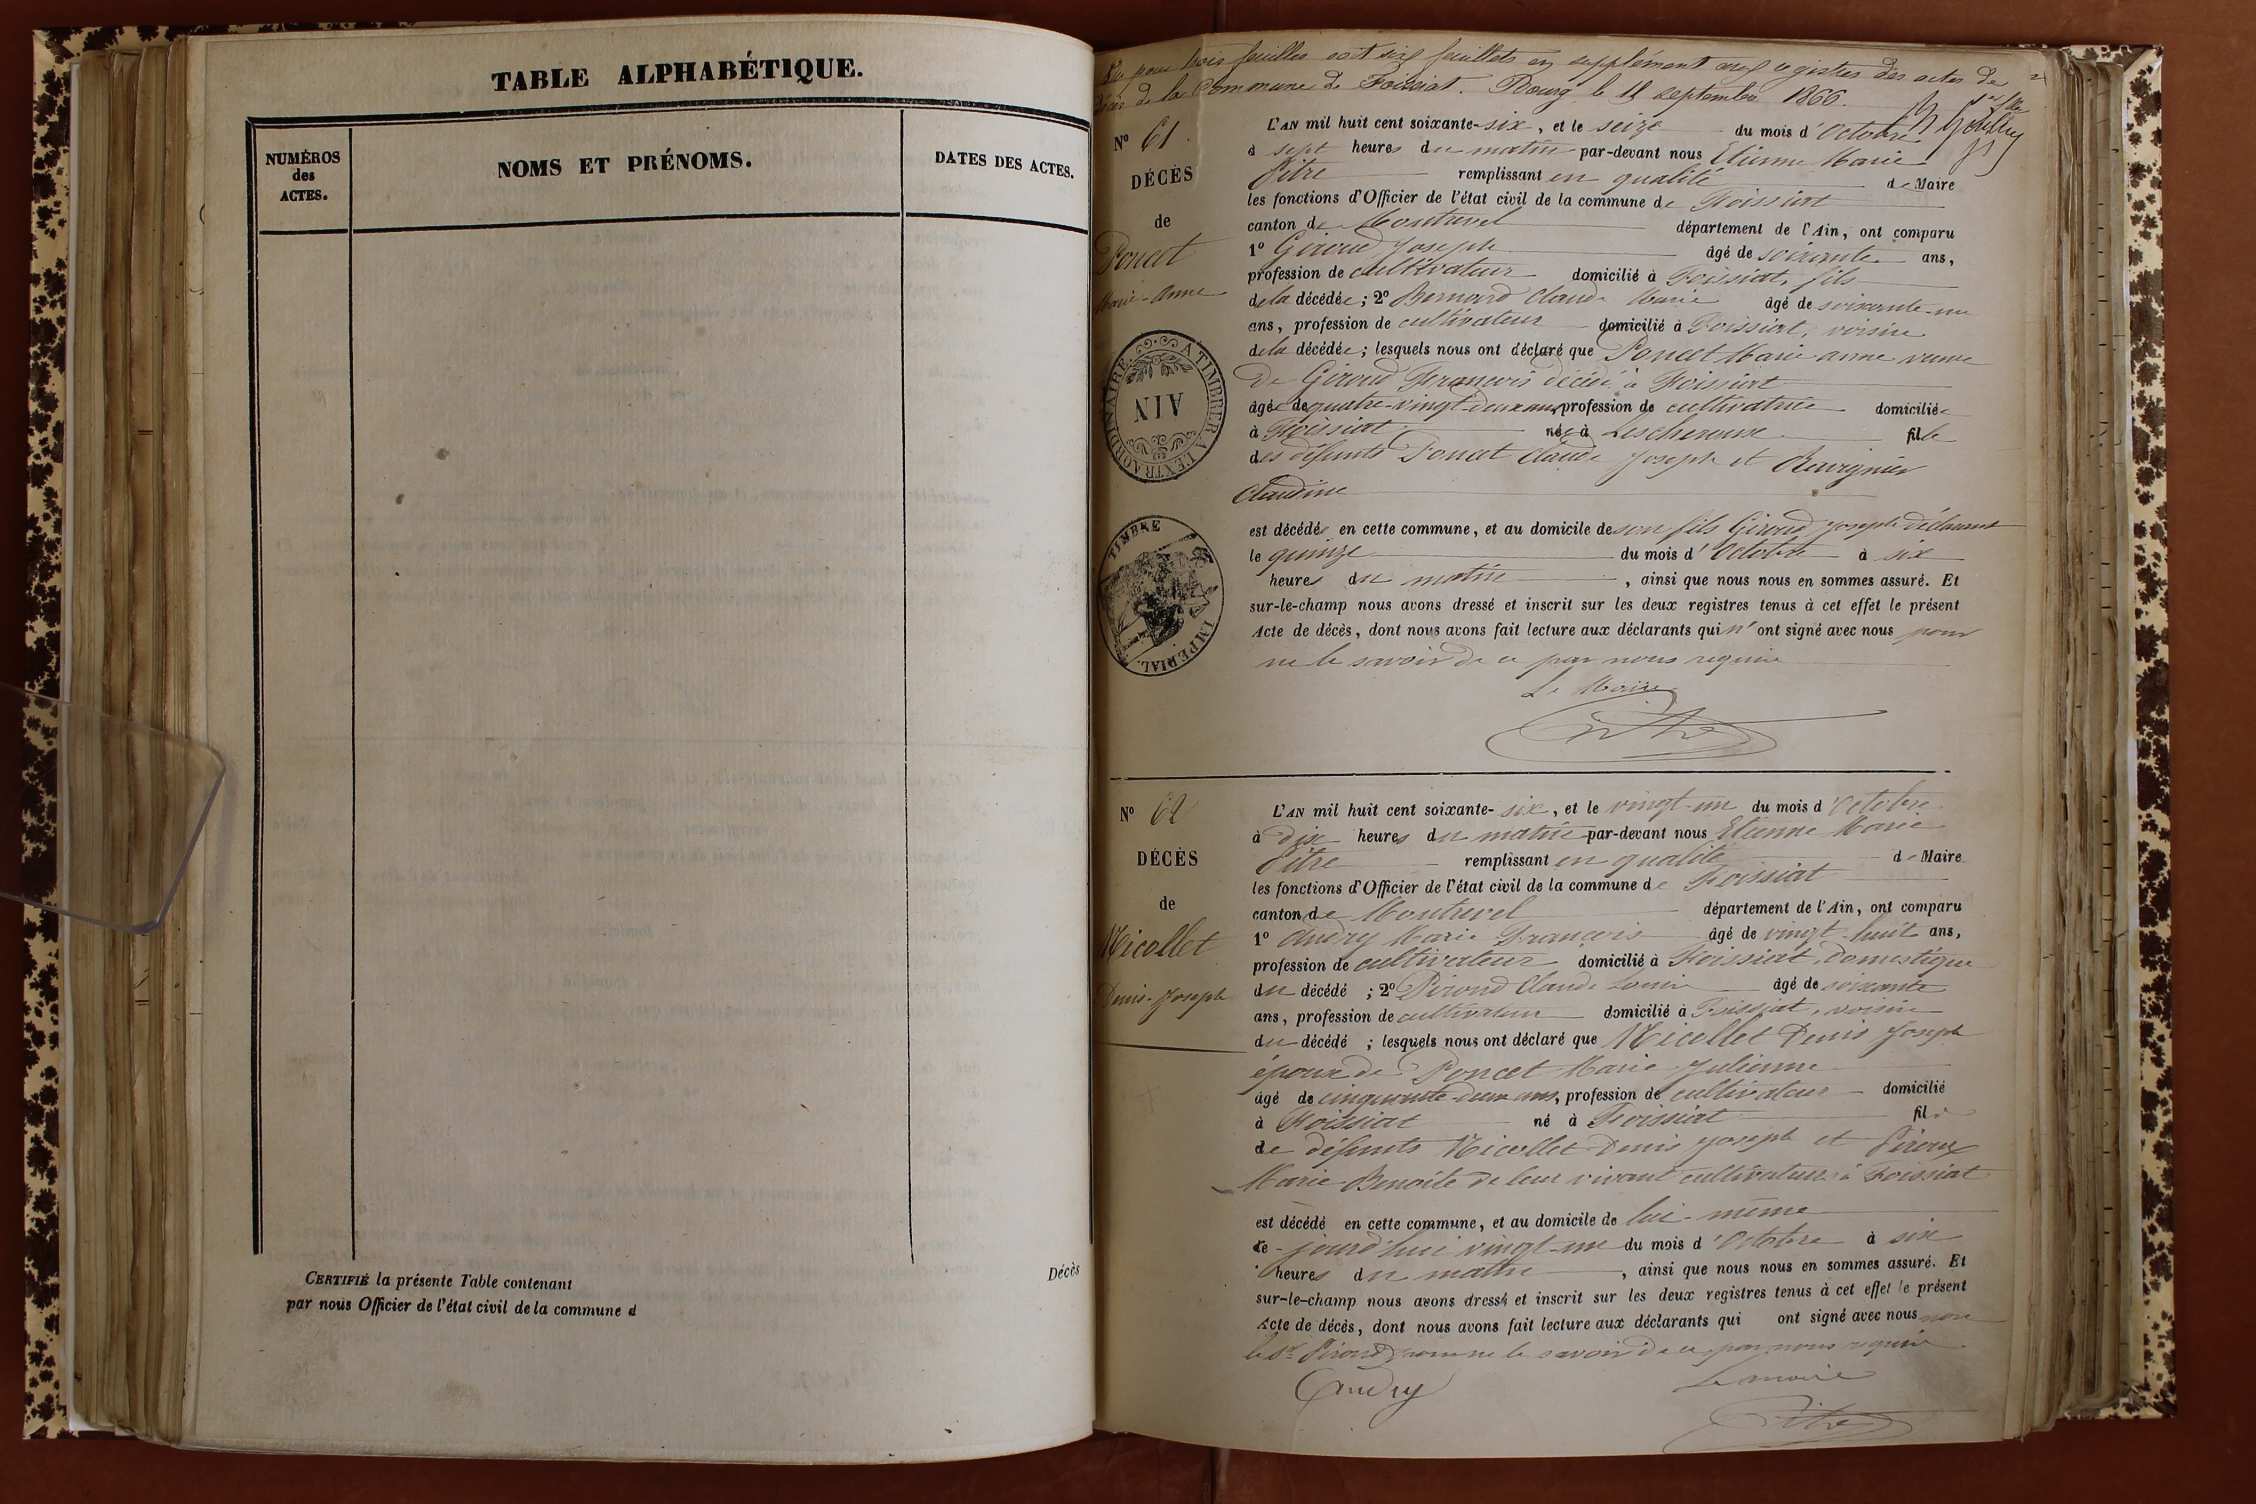 TABLE ALPHABÉTIQUE.
NUMÉROS
des
ACTES.
NOMS ET PRÉNOMS.
DATES DES ACTES.
CERTIFIÉ la présente Table contenant
Décès
par nous Officier de l'état civil de la commune d
Vu pour trois feuilles soit six feuillets en supplément aux registres des actes de
décès de la Commune de Foissiat. Bourg le 11 septembre 1866.
2
N° 61.
DÉCÈS
de
Poncet
Marie-Anne
A TIMBRER A L'EXTRAORDINAIRE.
AIN
TIMBRE IMPERIAL.
L'AN mil huit cent soixante-six, et le seize du mois d'Octobre
à sept heures du matin par-devant nous Etienne Marie
Pitre remplissant en qualité de Maire
les fonctions d'Officier de l'état civil de la commune de Foissiat
canton de Montrevel département de l'Ain, ont comparu
1° Giroud Joseph âgé de soixante ans,
profession de cultivateur domicilié à Foissiat, fils
de la décédée; 2° Bernard Claude Marie âgé de soixante-un
ans, profession de cultivateur domicilié à Foissiat, voisin
de la décédée; lesquels nous ont déclaré que Poncet Marie anne veuve
de Giroud François décédé à Foissiat
âgée de quatre-vingt-deux ans, profession de cultivatrice domiciliée
à Foissiat née à Lescheroux fille
des défunts Poncet Claude Joseph et
Claudine
est décédée en cette commune, et au domicile de son fils Giroud Joseph déclarant
le quinze du mois d'Octobre à six
heures du matin, ainsi que nous nous en sommes assuré. Et
sur-le-champ nous avons dressé et inscrit sur les deux registres tenus à cet effet le présent
Acte de décès, dont nous avons fait lecture aux déclarants qui n'ont signé avec nous pour
ne le savoir de ce par nous requis
Le Maire
Pitre
N° 62
DÉCÈS
de
Micollet
Denis-Joseph
L'AN mil huit cent soixante-six, et le vingt-un du mois d'Octobre
à dix heures du matin par-devant nous Etienne Marie
Pitre remplissant en qualité de Maire
les fonctions d'Officier de l'état civil de la commune de Foissiat
canton de Montrevel département de l'Ain, ont comparu
1° Andry Marie François âgé de vingt-huit ans,
profession de cultivateur domicilié à Foissiat, domestique
du décédé; 2° Piroud Claude Louis âgé de soixante
ans, profession de cultivateur domicilié à Foissiat, voisin
du décédé; lesquels nous ont déclaré que Micollet Denis Joseph
époux de Poncet Marie Julienne
âgé de cinquante-deux ans, profession de cultivateur domicilié
à Foissiat né à Foissiat fils
de défunts Micollet Denis Joseph et Piroux
Marie Benoite de leur vivant cultivateurs à Foissiat
est décédé en cette commune, et au domicile de lui-même
ce-jourd'hui vingt-un du mois d'Octobre à six
heures du matin, ainsi que nous nous en sommes assuré. Et
sur-le-champ nous avons dressé et inscrit sur les deux registres tenus à cet effet le présent
Acte de décès, dont nous avons fait lecture aux déclarants qui ont signé avec nous non
le Sr Piroud pour ne le savoir de ce par nous requis
Candry
Le maire
Pitre